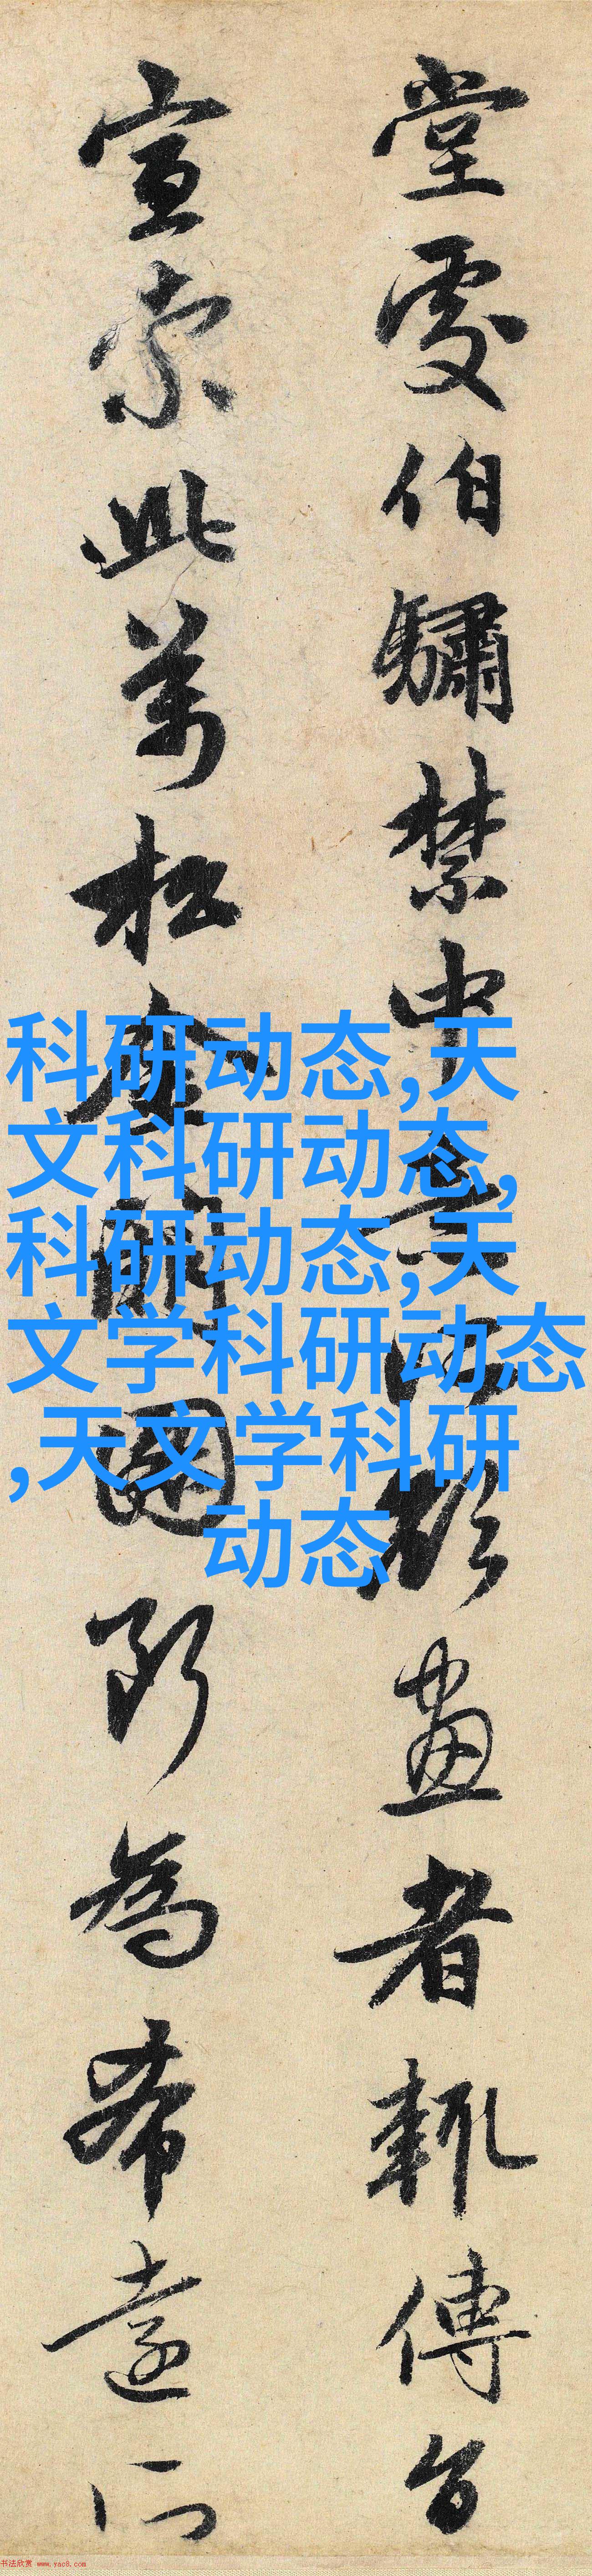 堂處伯驌禁中
畫者輒傳公
宣索此萬松金闕圖
斯為希遠所
科研动态,天
文科研动态,
科研动态,天
文学科研动态
,天文学科研
动态
书法欣赏 www.yac8.com